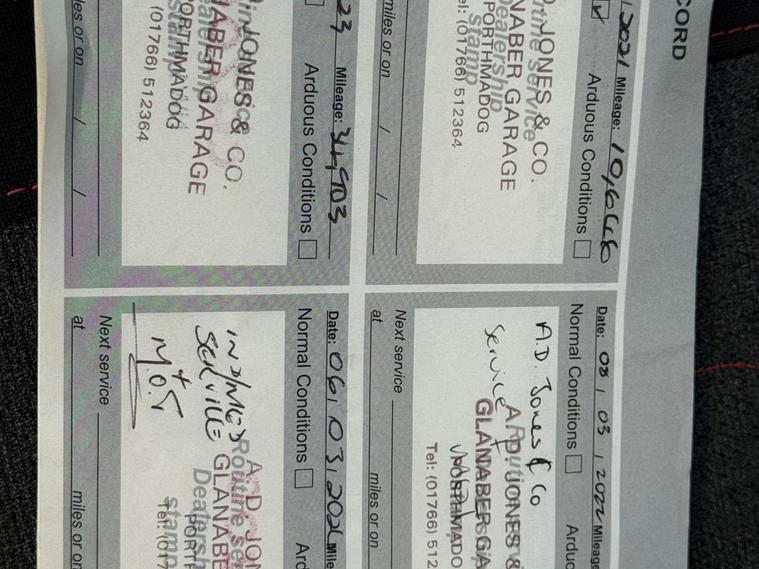 CORD
2021 Mileage: 10,648
Arduous Conditions
D. JONES & CO.
NABER GARAGE
Dealership
stamp
PORTHMADOG
Tel: (01766) 512364
miles or on / /
Date: 08 / 03 / 2022 Mileage
Normal Conditions Arduo
A.D. Jones & Co
Service
A.D. JONES &
GLANABER GA
Tel: (01766) 512
Next service
at miles or on
23 Mileage: 34,903
Arduous Conditions
JONES & CO.
NABER GARAGE
Dealership
stamp
PORTHMADOG
(01766) 512364
miles or on / /
Date: 06 / 03, 202 Mile
Normal Conditions Ard
SERVICE
+
M.O.T
A. D. JON
GLANABE
Routine ser
Dealersh
stamp
PORT
Tel: (017
Next service
at miles or on